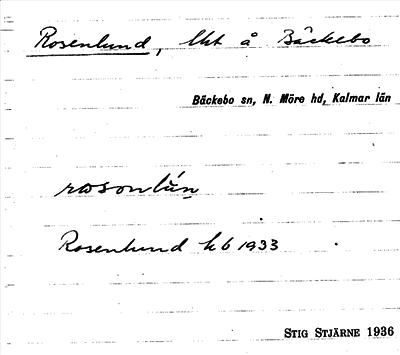 Rosenlund, lht å Bäckebo
Bäckebo sn, N. Möre hd, Kalmar län
Rosenlund hb 1933
STIG STJÄRNE 1936